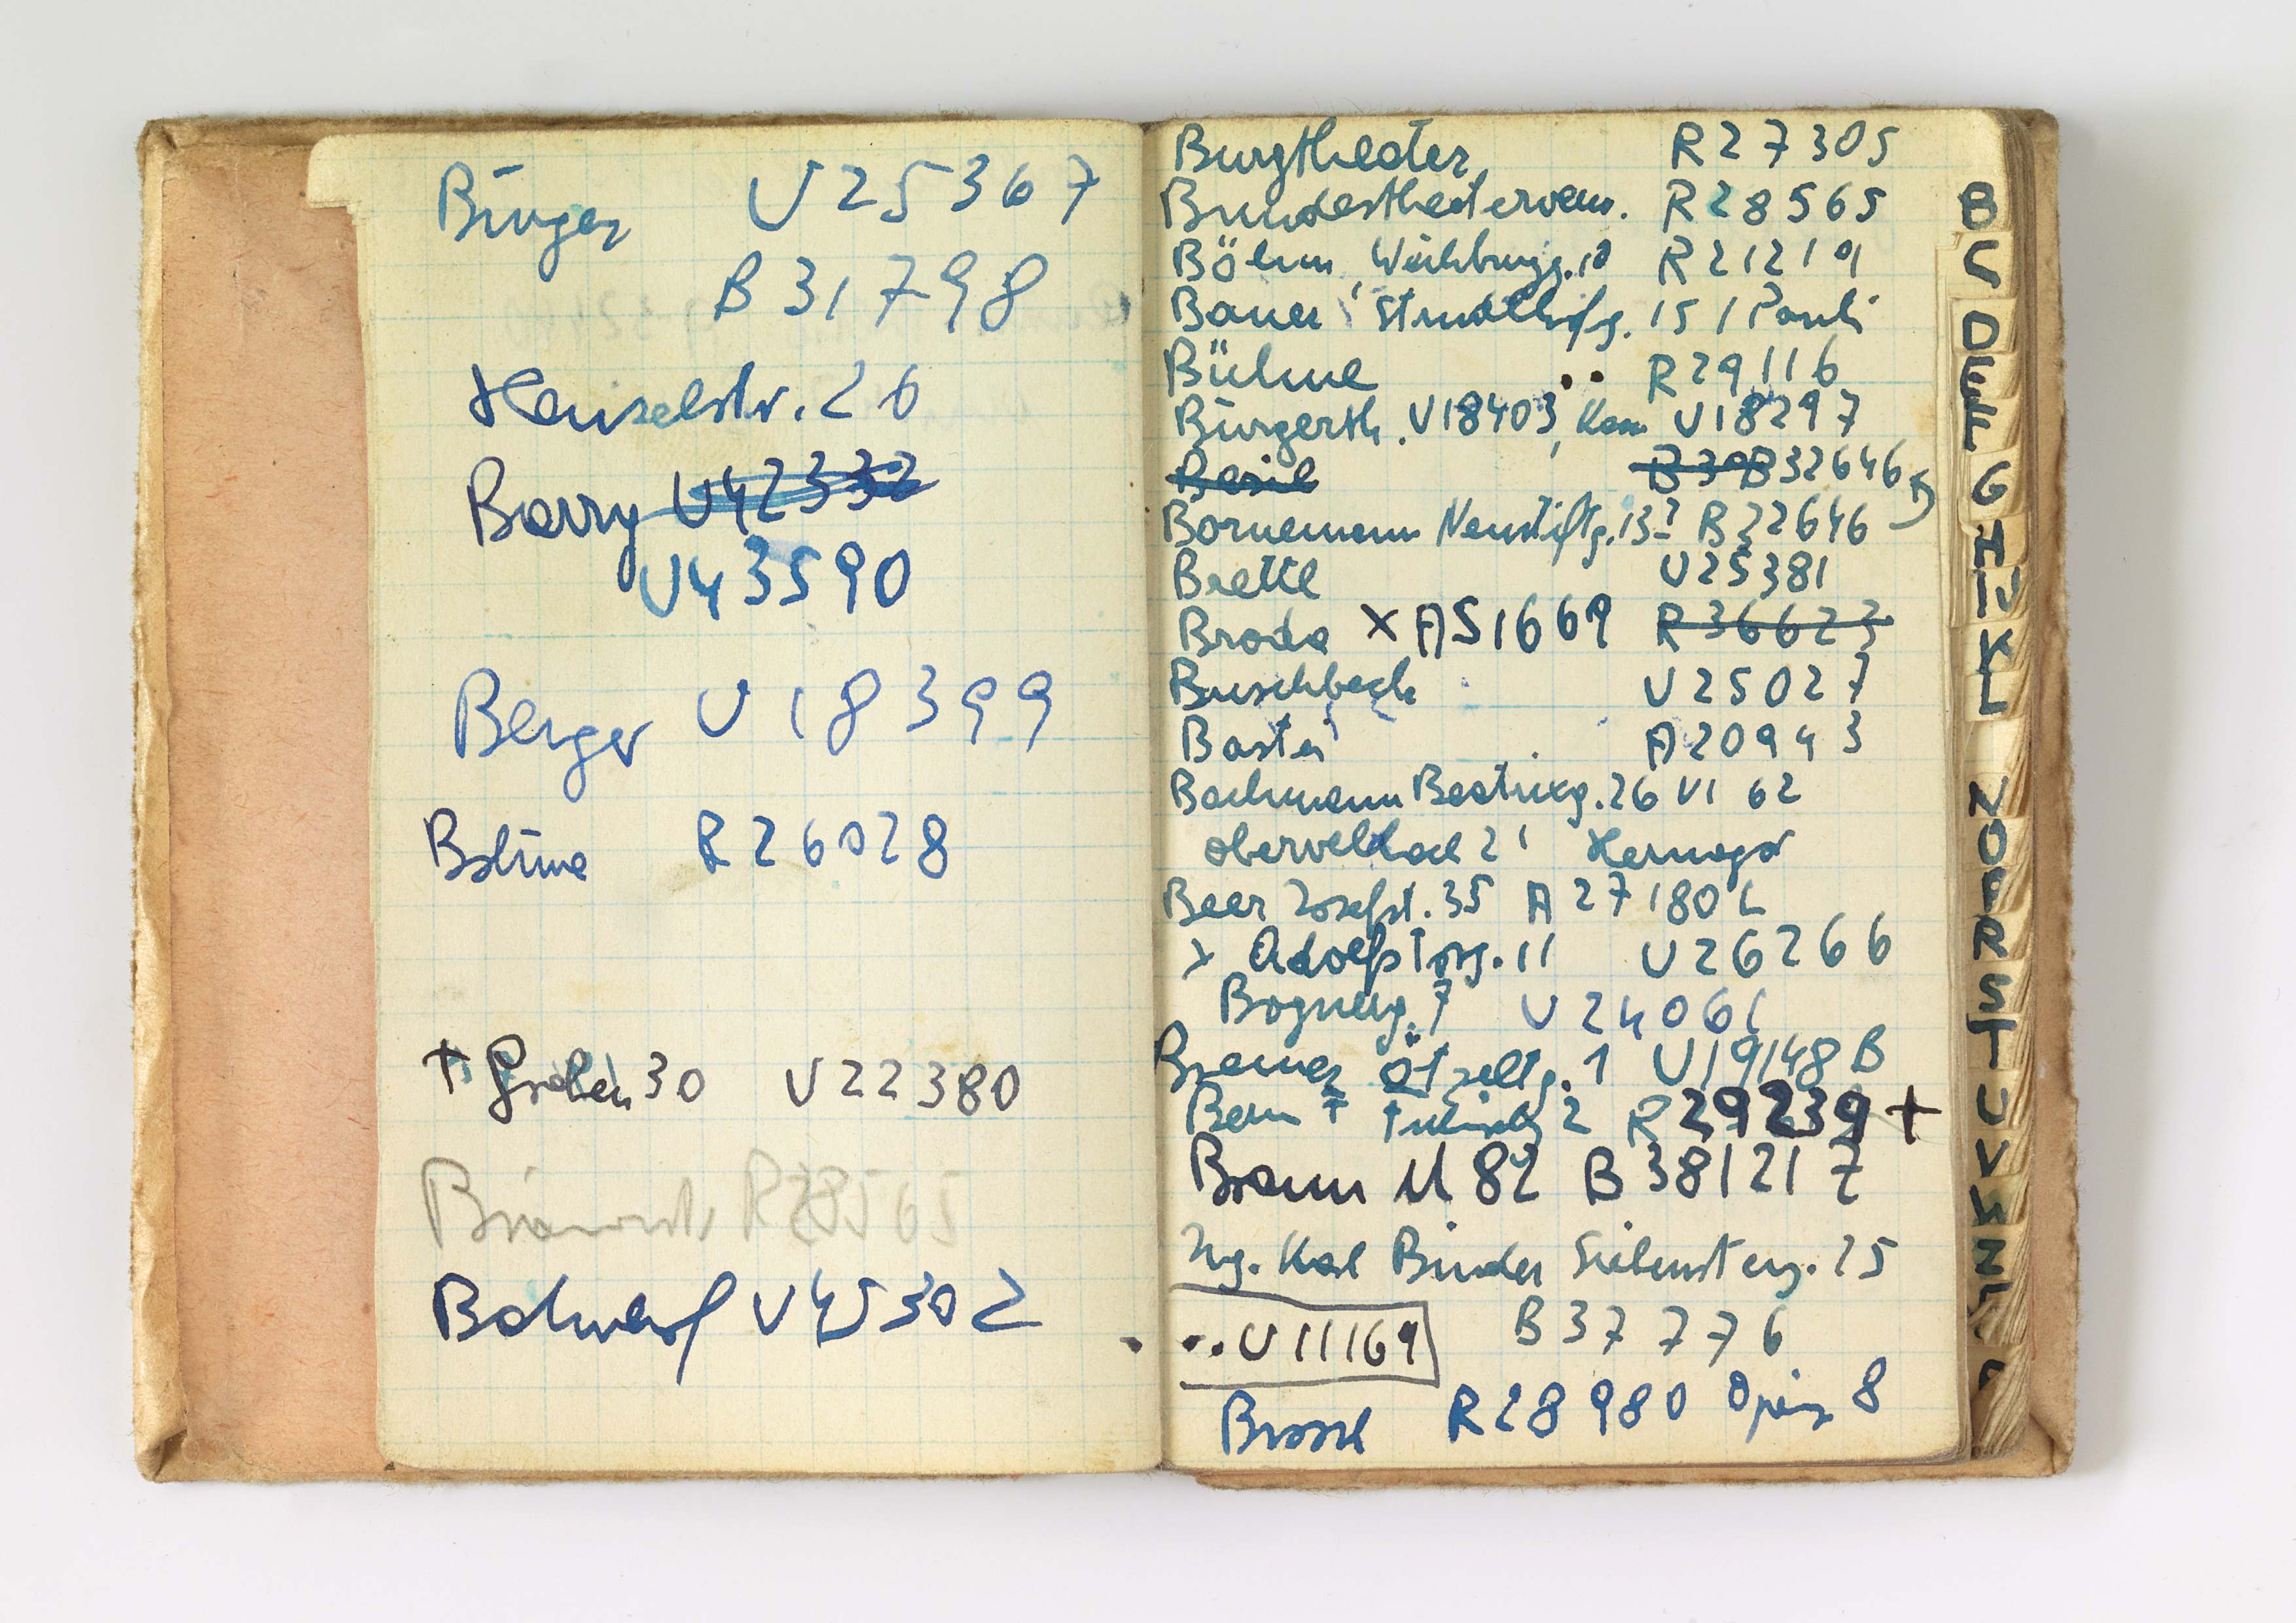 Bürger U25367
B 31798
Henselstr. 26
Barry U42332
U43590
Berger U 18399
Böhme R26028
+ Graben 30 U22380
R28565
U45302
Burgtheater R27305
Bundestheaterverw. R28565
Böhm R21219
Bauer Strudlhofg. 15 / Pauli
Bühne R29116
Bürgerth. U18403, Kassa U18297
B30 B32646
Bornemann Neustiftg. B22646
Brettl U25381
Broda x A51669 R36623
Buschbeck U25027
Bastei A20943
Bachmann Beatrixg. 26 VI 62
Obervellach 21 Hermagor
Beer Josefst. 35 A 27180 L
x Adolfstorg. 11 U26266
Bognerg. 7 U 2406L
Bremer Ötzeltg. 1 U19148 B
2 R 29239 +
Braun M 82 B 381217
Ing. Karl Binder Siebensterng. 25
..U11169 B37776
R28980 8
B
C
D
E
F
G
H
I J
K
L
N
O
P
R
S
T
U
V
W
Z